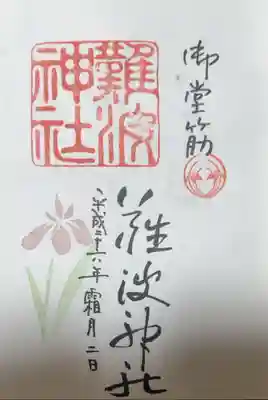 御堂筋
難波
神社
難波神社
平成二十六年霜月二日